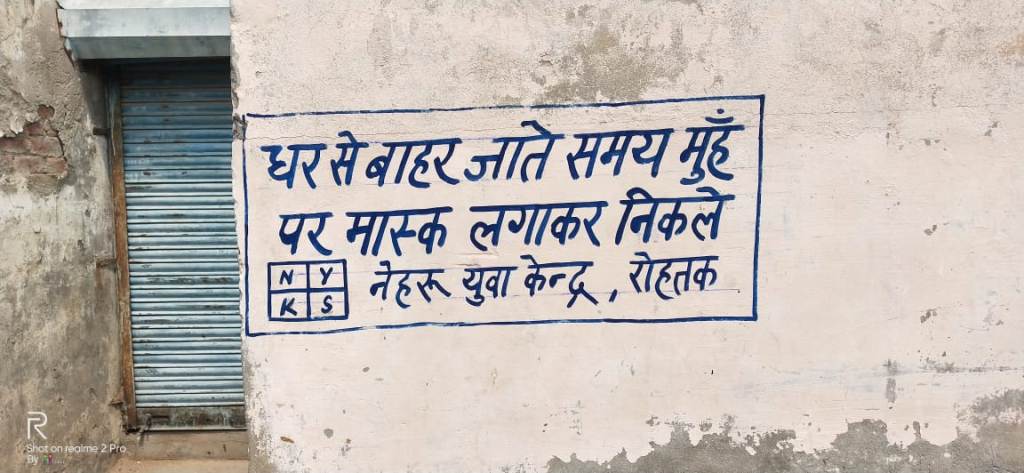 घर से बाहर जाते समय मुहँ
पर मास्क लगाकर निकले
N Y
K S
नेहरू युवा केन्द्र , रोहतक
R
Shot on realme 2 Pro
By